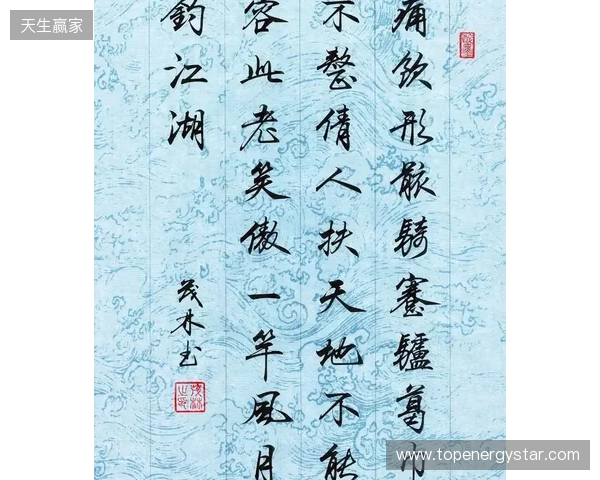 天生赢家
痛饮形骸骑蹇驴葛巾
不整倩人扶天地不能
容此老笑傲一竿风月
钓江湖
茂林书
www.topenergystar.com